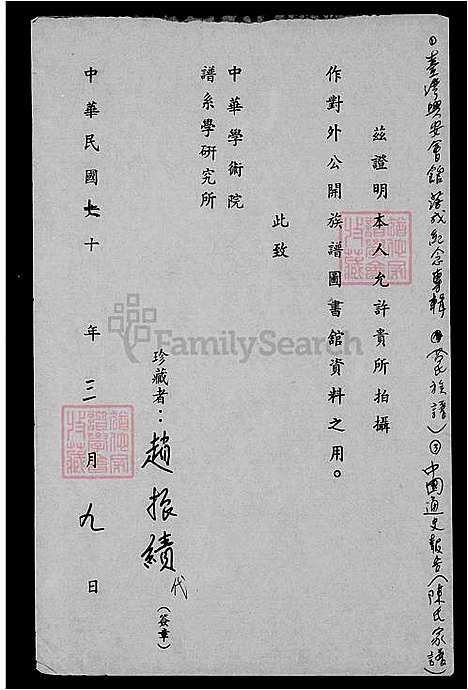 ①臺灣興安會館落成紀念專輯 ②黃氏族譜 ③中國通史報告(陳氏家譜)
茲證明本人允許貴所拍攝
作對外公開族譜圖書館資料之用。
此致
中華學術院
譜系學研究所
珍藏者：趙振績代(簽章)
中華民國七十年三月九日
FamilySearch